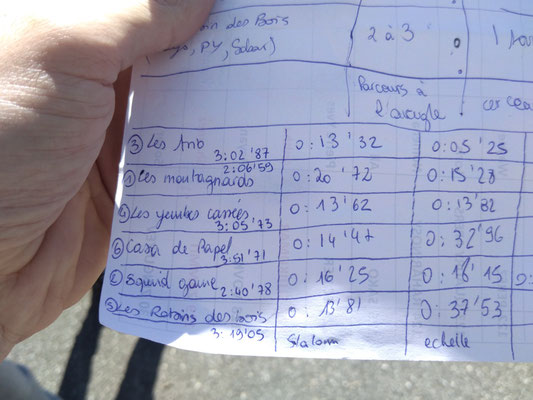 des Bois
, PY,
2 à 3
1
Parcours à
l'aveugle
③ Les
3:02'87
0:13'32
0:05'25
2:06'59
① Les montagnards
0:20'72
0:15'28
Les
3:05'73
0:13'62
0:13'82
⑥ Casa de Papel
3:51'71
0:14'47
0:32'96
Squid game
2:40'78
0:16'25
0:18'15
⑤ Les Robins des bois
3:19'05
0:13'81
0:37'53
Slalom
echelle